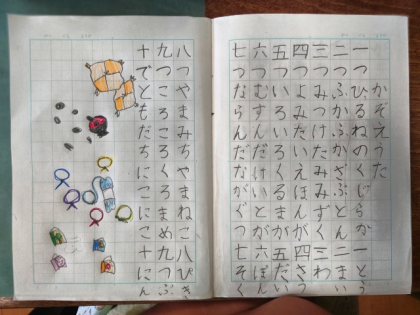 かぞえうた
一つひるねのくじらが 一とう
二つふかふかざぶとん 二まい
三つみつけたみみずく 三わ
四つよみたいえほんが 四さつ
五ついろいろくるまが 五だい
六つむすんだけいとが 六ぽん
七つならんだながぐつ 七そく
八つやまみちやまねこ 八ぴき
九つころころくろまめ 九つぶ
十でともだちにこにこ 十にん